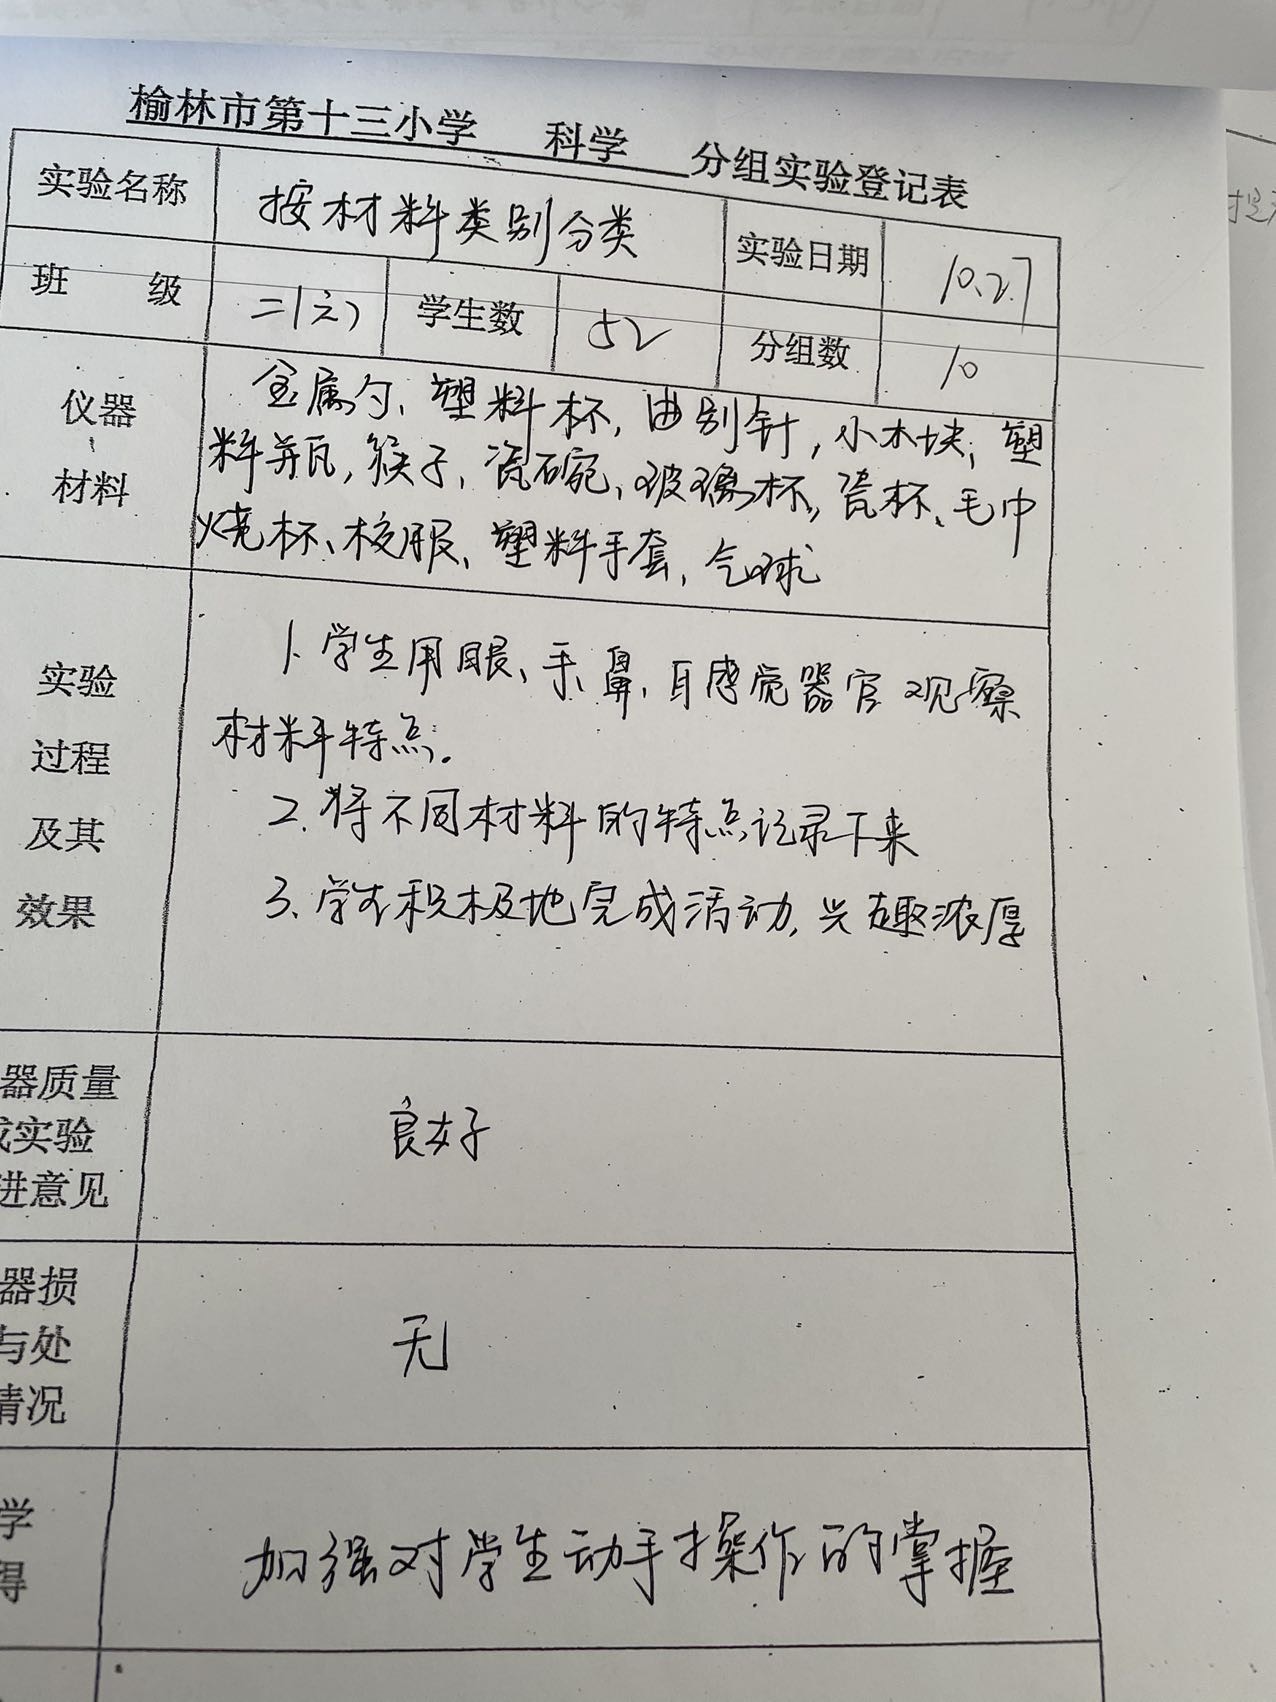 榆林市第十三小学 科学 分组实验登记表
实验名称 按材料类别分类 实验日期 10.27
班 级 二(六) 学生数 52 分组数 10
仪器、材料
金属勺、塑料杯,曲别针,小木块,塑
料瓶,筷子、瓷碗、玻璃杯,瓷杯、毛巾
烧杯、校服、塑料手套,气球
实验过程及其效果
1.学生用眼、手、鼻、耳感觉器官观察
材料特点.
2.将不同材料的特点记录下来
3、学生积极地完成活动,兴趣浓厚
器质量
实验
进意见
良好
器损
与处
情况
无
学
得
加强对学生动手操作的掌握